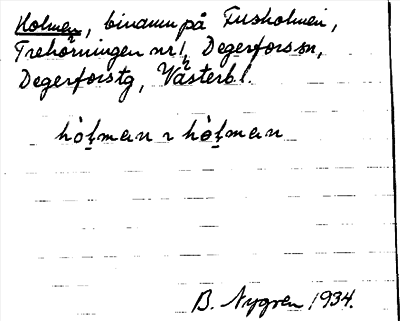 Holmen, binamn på Furuholmen,
Trehörningen nr 1, Degerfors sn,
Degerfors tg, Västerb l.
hò̭ḻman ɿ hò̭ḻman
B. Nygren 1934.